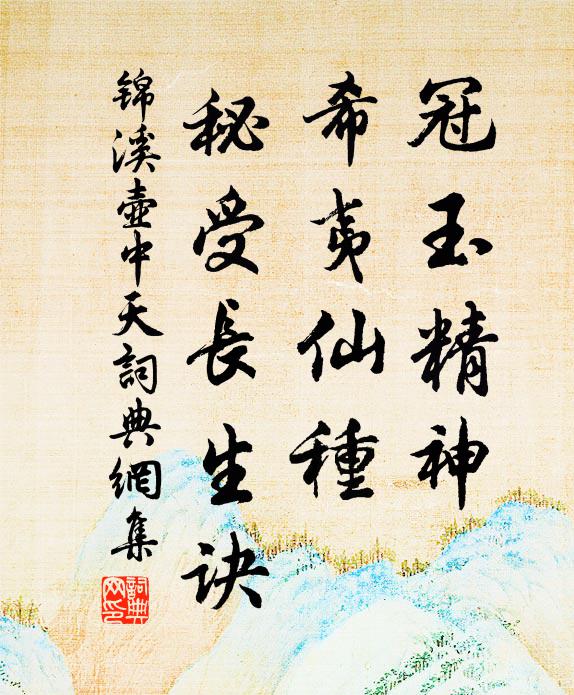 冠玉精神
希夷仙種
秘受長生訣
锦溪壺中天詞典網集
詞典网印